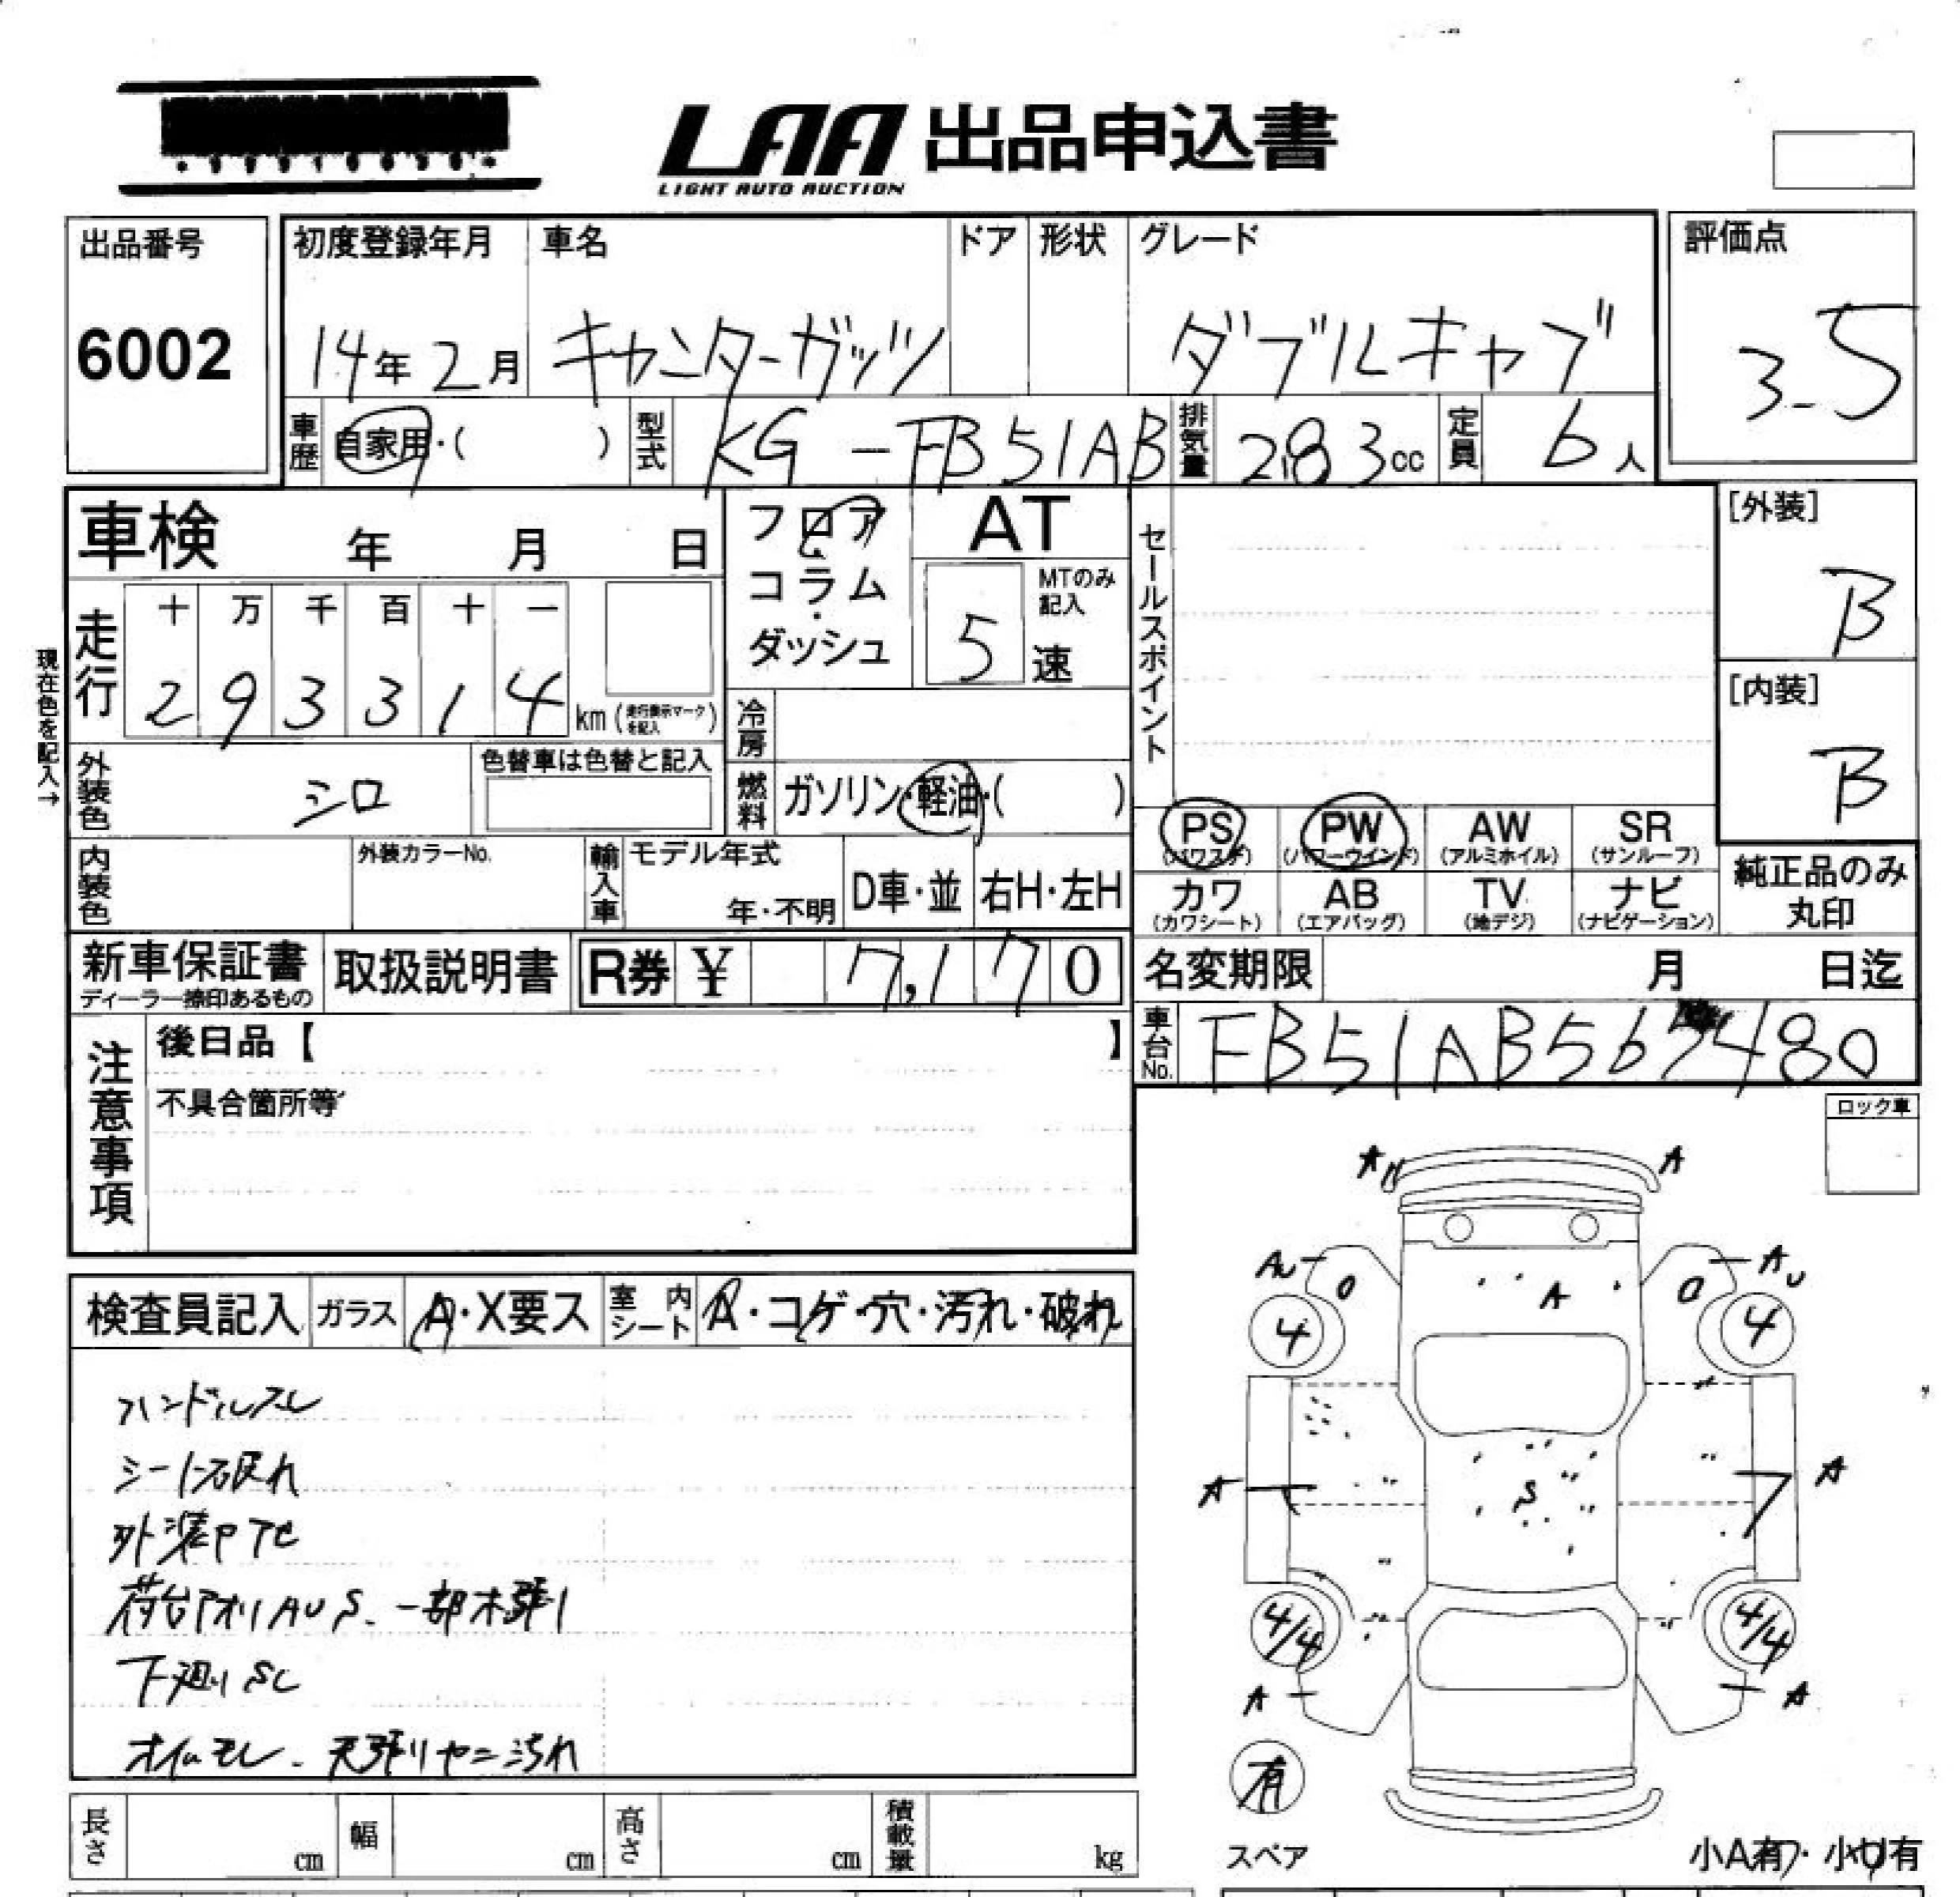 LAA 出品申込書
LIGHT AUTO AUCTION
出品番号
6002
初度登録年月
14年 2月
車名
キャンターガッツ
ドア
形状
グレード
ダブルキャブ
評価点
3.5
車歴
自家用・( )
型式
KG-FB51AB
排気量
2.83cc
定員
6人
車検 年 月 日
フロア・コラム・ダッシュ
AT
MTのみ記入
5速
セールスポイント
[外装]
B
[内装]
B
現在色を記入→
走行
十 万 千 百 十 一
2 9 3 3 1 4 km (走行表示マークを記入)
冷房
外装色
シロ
色替車は色替と記入
燃料
ガソリン・軽油・( )
PS
(パワステ)
PW
(パワーウインド)
AW
(アルミホイル)
SR
(サンルーフ)
カワ
(カワシート)
AB
(エアバッグ)
TV
(地デジ)
ナビ
(ナビゲーション)
純正品のみ
丸印
内装色
外装カラーNo.
輸入車
モデル年式
年・不明
D車・並
右H・左H
新車保証書
ディーラー捺印あるもの
取扱説明書
R券 ¥ 7,170
名変期限 月 日迄
車台No.
FB51AB567480
注意事項
後日品【 】
不具合箇所等
ロック車
検査員記入
ガラス
A・X要ス
室内シート
A・コゲ・穴・汚れ・破れ
ハンドルスレ
シート破れ
外装P下地
荷台アオリAUS.一部木張り
下廻りSC
オイルモレ.天張りヤニ汚れ
A
A
AU
A
AU
4
4
A
S
A
4/4
4/4
A
A
有
スペア
小A有・小U有
長さ cm
幅 cm
高さ cm
積載量 kg